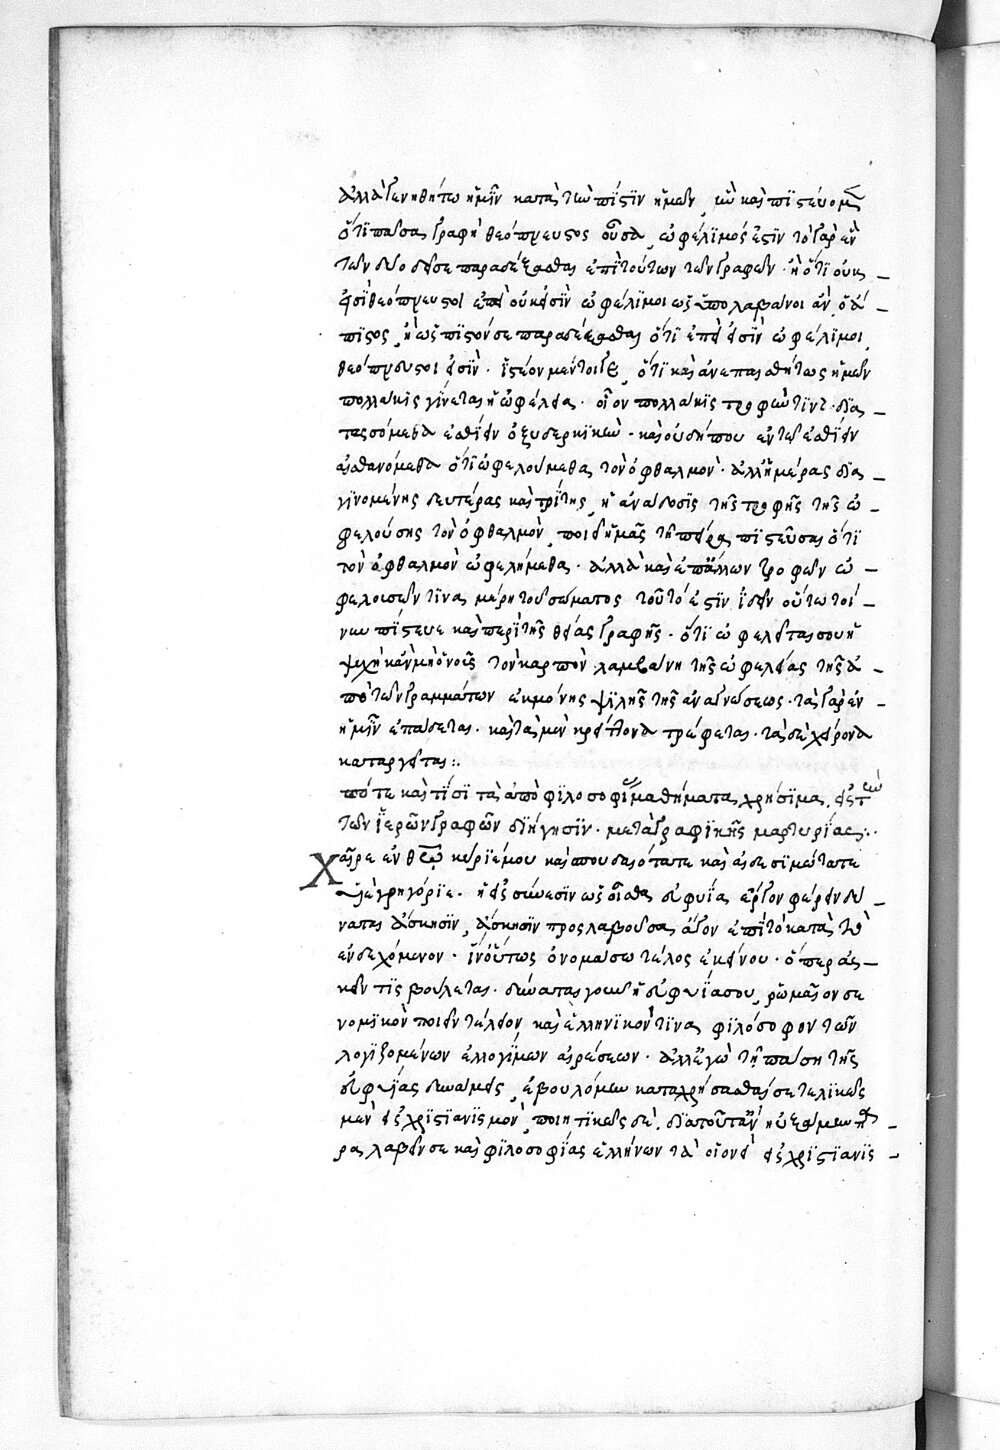 ἀλλὰ γενηθήτω ἡμῖν κατὰ τὴν πίστιν ἡμῶν, ἣν καὶ πιστεύομεν
ὅτι πᾶσα γραφὴ θεόπνευστος οὖσα, ὠφέλιμός ἐστιν τὸ γὰρ ἓν
τῶν δύο δεῖ σε παραδέξασθαι ἐπὶ τούτων τῶν γραφῶν· ἢ ὅτι οὐκ
εἰσὶ θεόπνευστοι ἐπεὶ οὐκ εἰσὶν ὠφέλιμοι ὡς ὑπολαμβάνοι ἂν ὁ ἄ
πιστος, ἢ ὡς πιστόν σε παραδέξασθαι ὅτι ἐπεὶ εἰσὶν ὠφέλιμοι,
θεόπνευστοι εἰσίν· ἰστέον μέντοιγε, ὅτι καὶ ἀνεπαισθήτως ἡμῶν
πολλάκις γίνεται ἡ ὠφέλεια· οἷον πολλάκις τροφήν τινι· δια
τασσόμεθα ἐσθίειν ὀξυδερκικήν· καὶ οὐ δήπου ἐν τῷ ἐσθίειν
αἰσθανόμεθα ὅτι ὠφελούμεθα τὸν ὀφθαλμόν· ἀλλ' ἡμέρας δια
γινομένης δευτέρας καὶ τρίτης, ἡ ἀνάδοσις τῆς τροφῆς τῆς ὠ
φελούσης τὸν ὀφθαλμὸν, ποιεῖ ἡμᾶς τῇ πείρᾳ πιστεῦσαι ὅτι
τὸν ὀφθαλμὸν ὠφελήμεθα· ἀλλὰ καὶ ἐπ' ἄλλων τροφῶν ὠ
φελουσῶν τινα μέρη τοῦ σώματος τοῦτό ἐστιν ἰδεῖν οὕτω τοί
νυν πίστευε καὶ περὶ τῆς θείας γραφῆς· ὅτι ὠφελεῖταί σου ἡ
ψυχὴ κἂν μὴ ὁ νοῦς τὸν καρπὸν λαμβάνῃ τῆς ὠφελείας τῆς ἀ
πὸ τῶν γραμμάτων ἐκ μόνης ψιλῆς τῆς ἀναγνώσεως· τὰ γὰρ ἐν
ἡμῖν ἐπᾴδεται· καὶ τὰ μὲν κρείττονα τρέφεται· τὰ δὲ χείρονα
καταργεῖται:.
πότε καὶ τίσι τὰ ἀπὸ φιλοσοφίας μαθήματα χρήσιμα, εἰς τὴν
τῶν ἱερῶν γραφῶν διήγησιν· μετὰ γραφικῆς μαρτυρίας:·
Χαῖρε ἐν θεῷ κύριέ μου καὶ σπουδαιότατε καὶ αἰδεσιμώτατε
υἱὲ γρηγόριε· ἡ εἰς σύνεσιν ὡς οἶσθα εὐφυΐα ἔργον φέρειν δύ
ναται ἄσκησιν, ἄσκησιν προσλαβοῦσα, ἄγον ἐπὶ τὸ κατὰ τὸ
ἐνδεχόμενον· ἵν' οὕτως ὀνομάσω τέλος ἐκείνου· ὅπερ ἀσ
κεῖν τις βούλεται· δύναται γοῦν ἡ εὐφυΐα σου, ῥωμαῖόν σε
νομικὸν ποιεῖν τέλειον, καὶ ἑλληνικόν τινα φιλόσοφον τῶν
λογιζομένων ἐλλογίμων αἱρέσεων· ἀλλ' ἐγὼ τῇ πάσῃ τῆς
εὐφυΐας δυνάμει, ἐβουλόμην καταχρήσασθαί σε τελικῶς
μὲν εἰς χριστιανισμὸν, ποιητικῶς δὲ, διὰ τοῦτ' ἂν ηὐξάμην πα
ραλαβεῖν σε καὶ φιλοσοφίας ἑλλήνων τὰ οἱονεὶ εἰς χριστιανισ